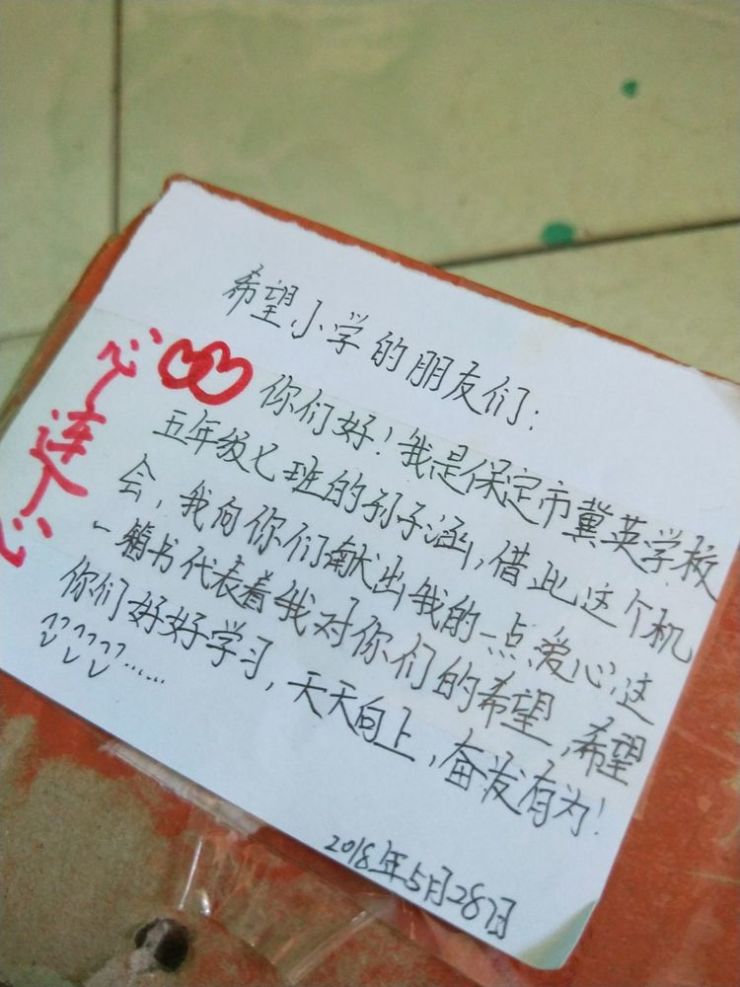 希望小学的朋友们：
你们好！我是保定市冀英学校
五年级七班的孙子涵，借此这个机
会，我向你们献出我的一点爱心，这
一箱书代表着我对你们的希望，希望
你们好好学习，天天向上，奋发有为！
2018年5月28日
心连心